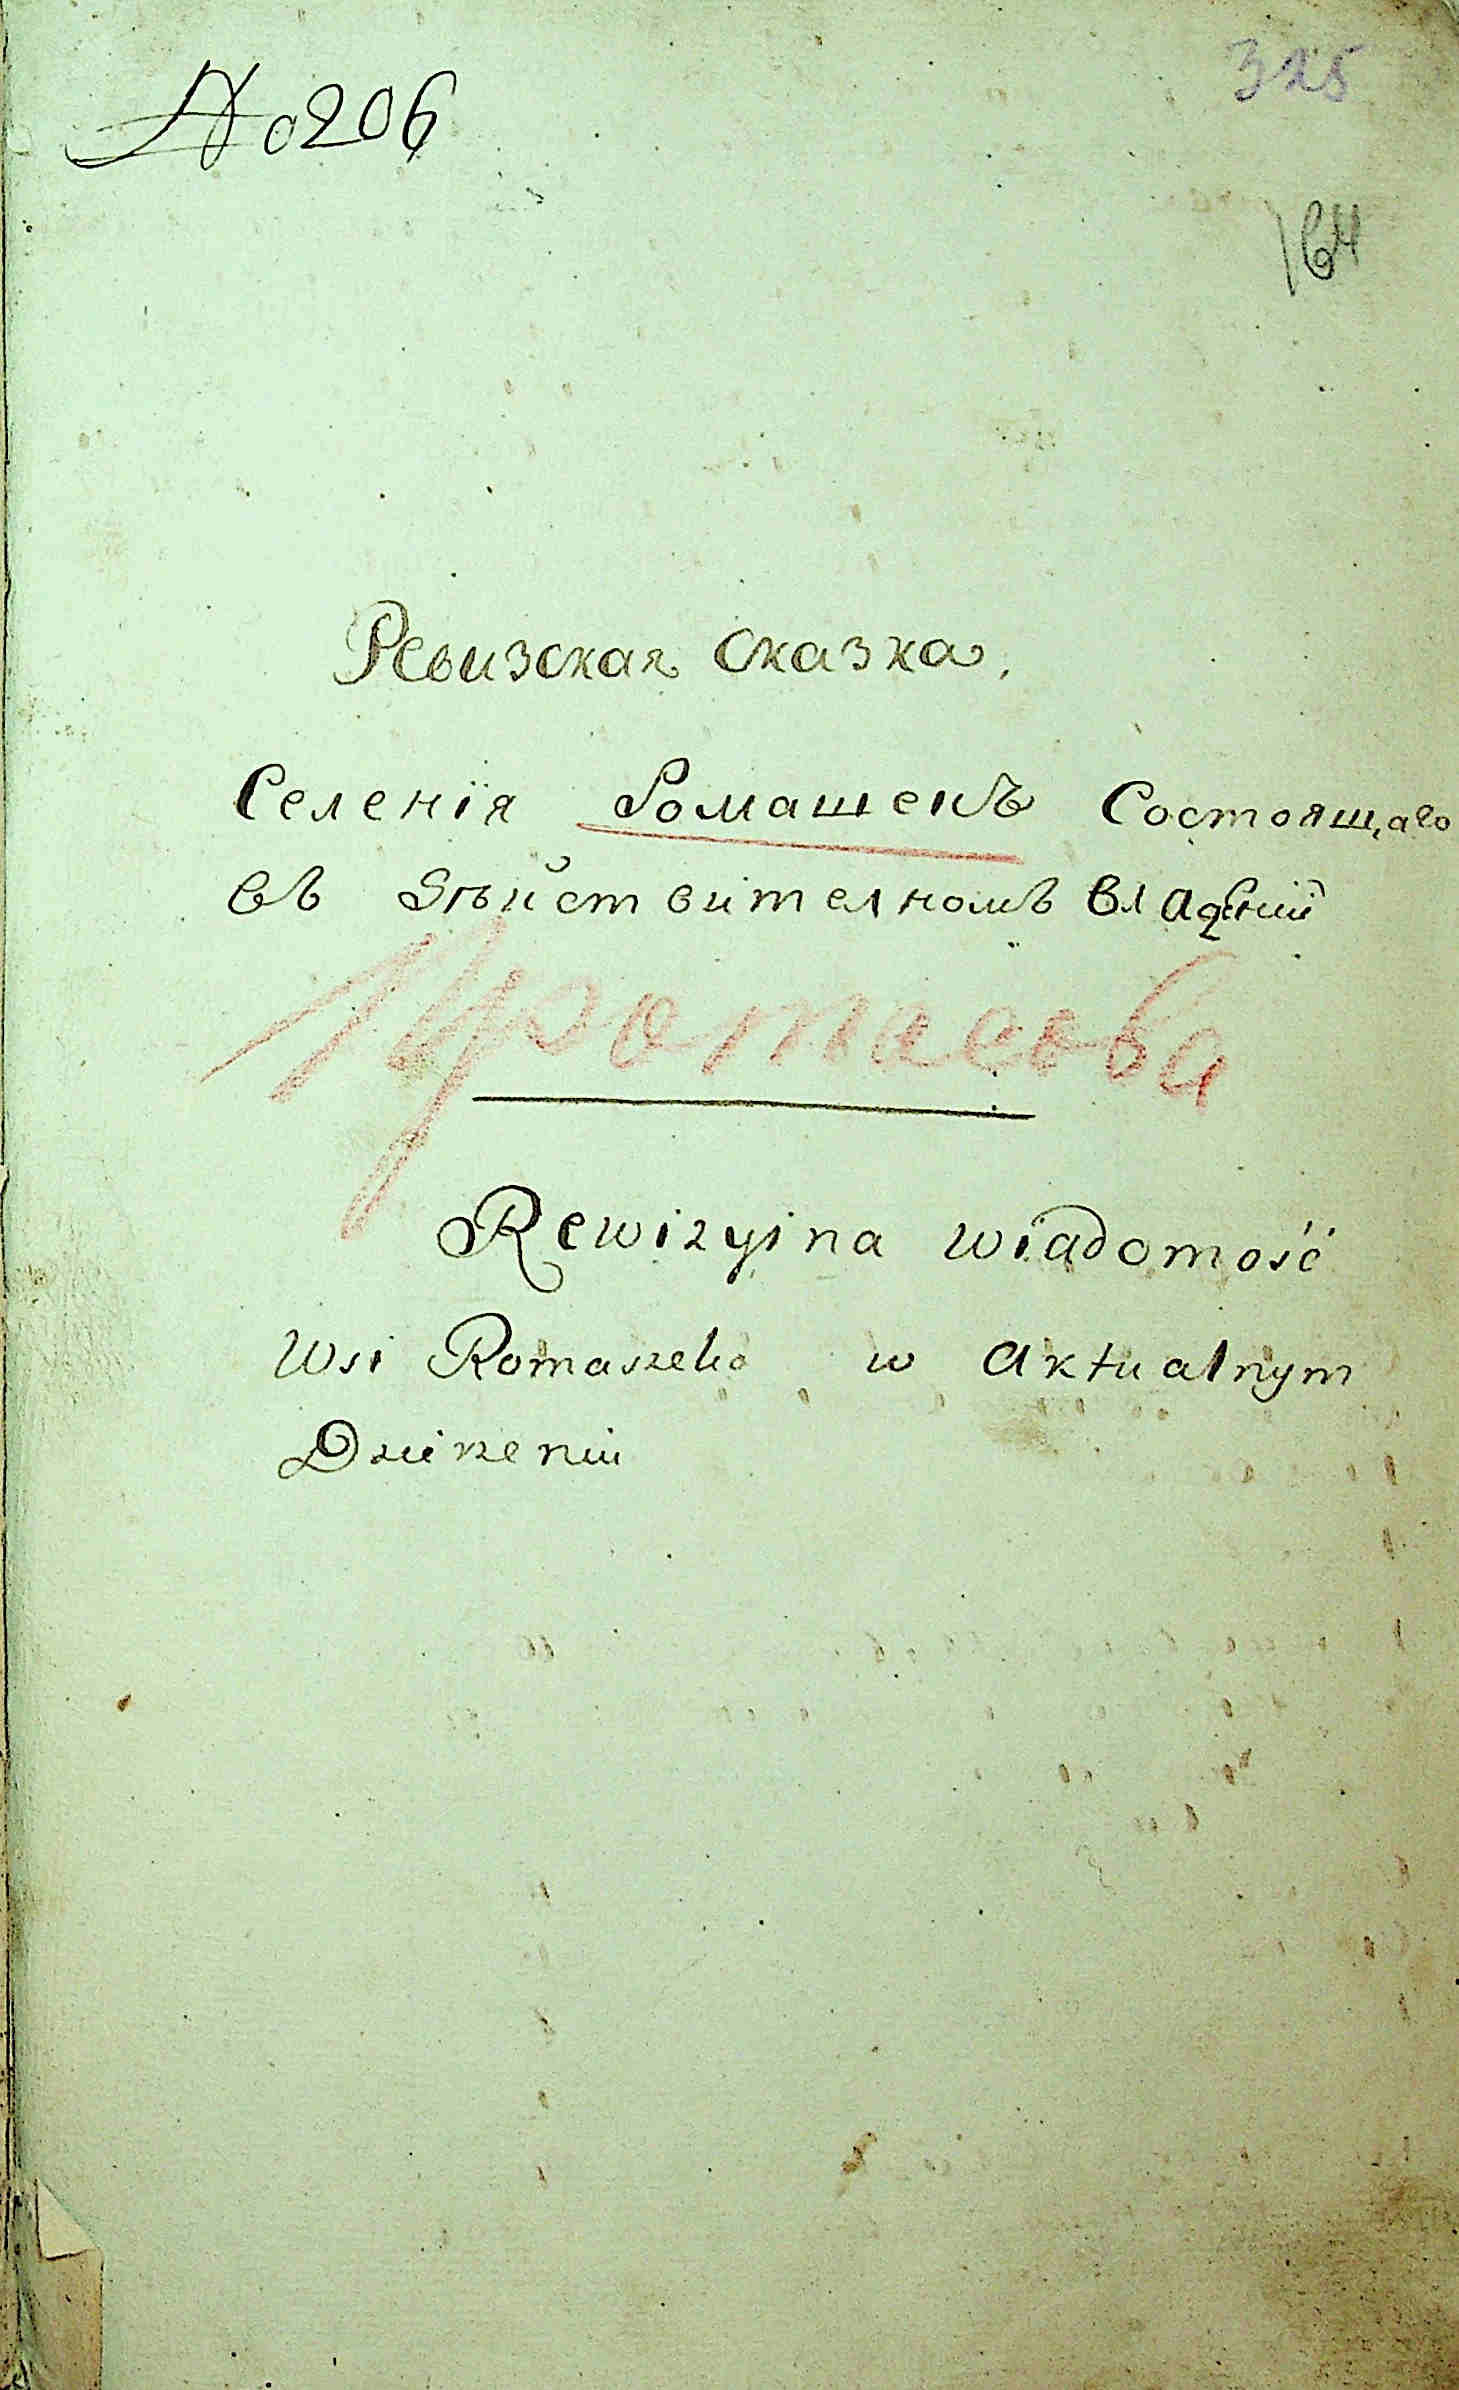 № 206
325
164
Ревизская сказка.
Селенія Ромашекъ Состоящаго
въ Дѣйствителномъ владѣніи
Протасова
Rewizyina wiadomość
Wsi Romaszek w Aktualnym
Dzierżeniu